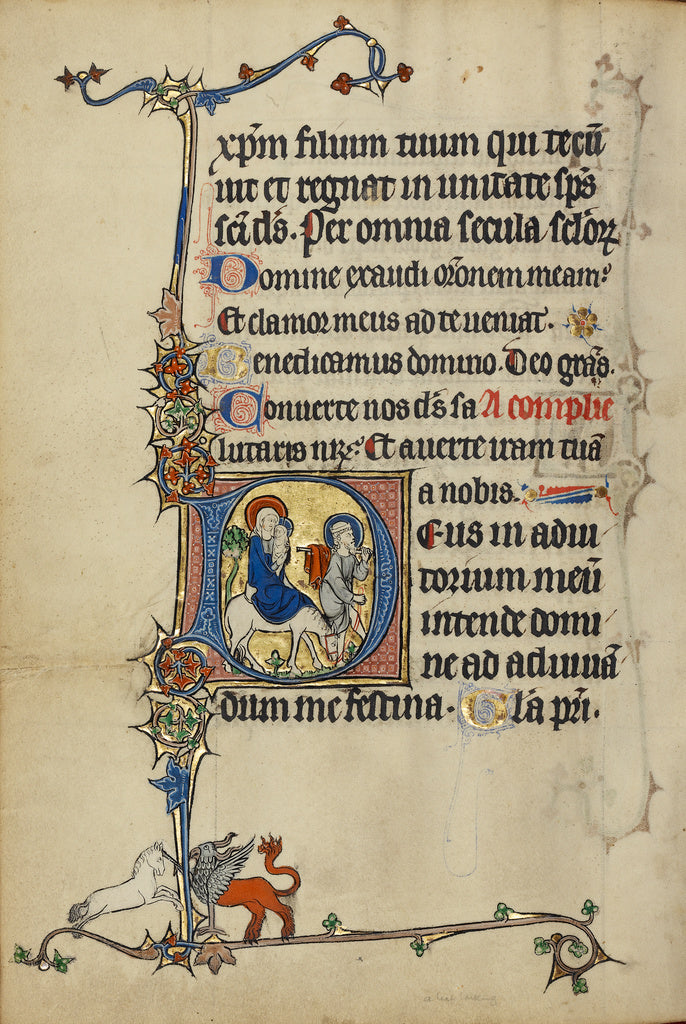 xp̄m filium tuum qui tecū
uiuit et regnat in unitate sp̄s
sc̄i d̄s. Per omnia secula sc̄lor̄ꝝ
Domine exaudi or̄onem meam:
Et clamor meus ad te ueniat.
Benedicamus domino. Deo gr̄as.
Conuerte nos d̄s sa A complie
lutaris nr̄: Et auerte iram tuā
a nobis.
Deus in adiu
torium meū
intende domi
ne ad adiuuā
dum me festina. Gl̄a pr̄i.